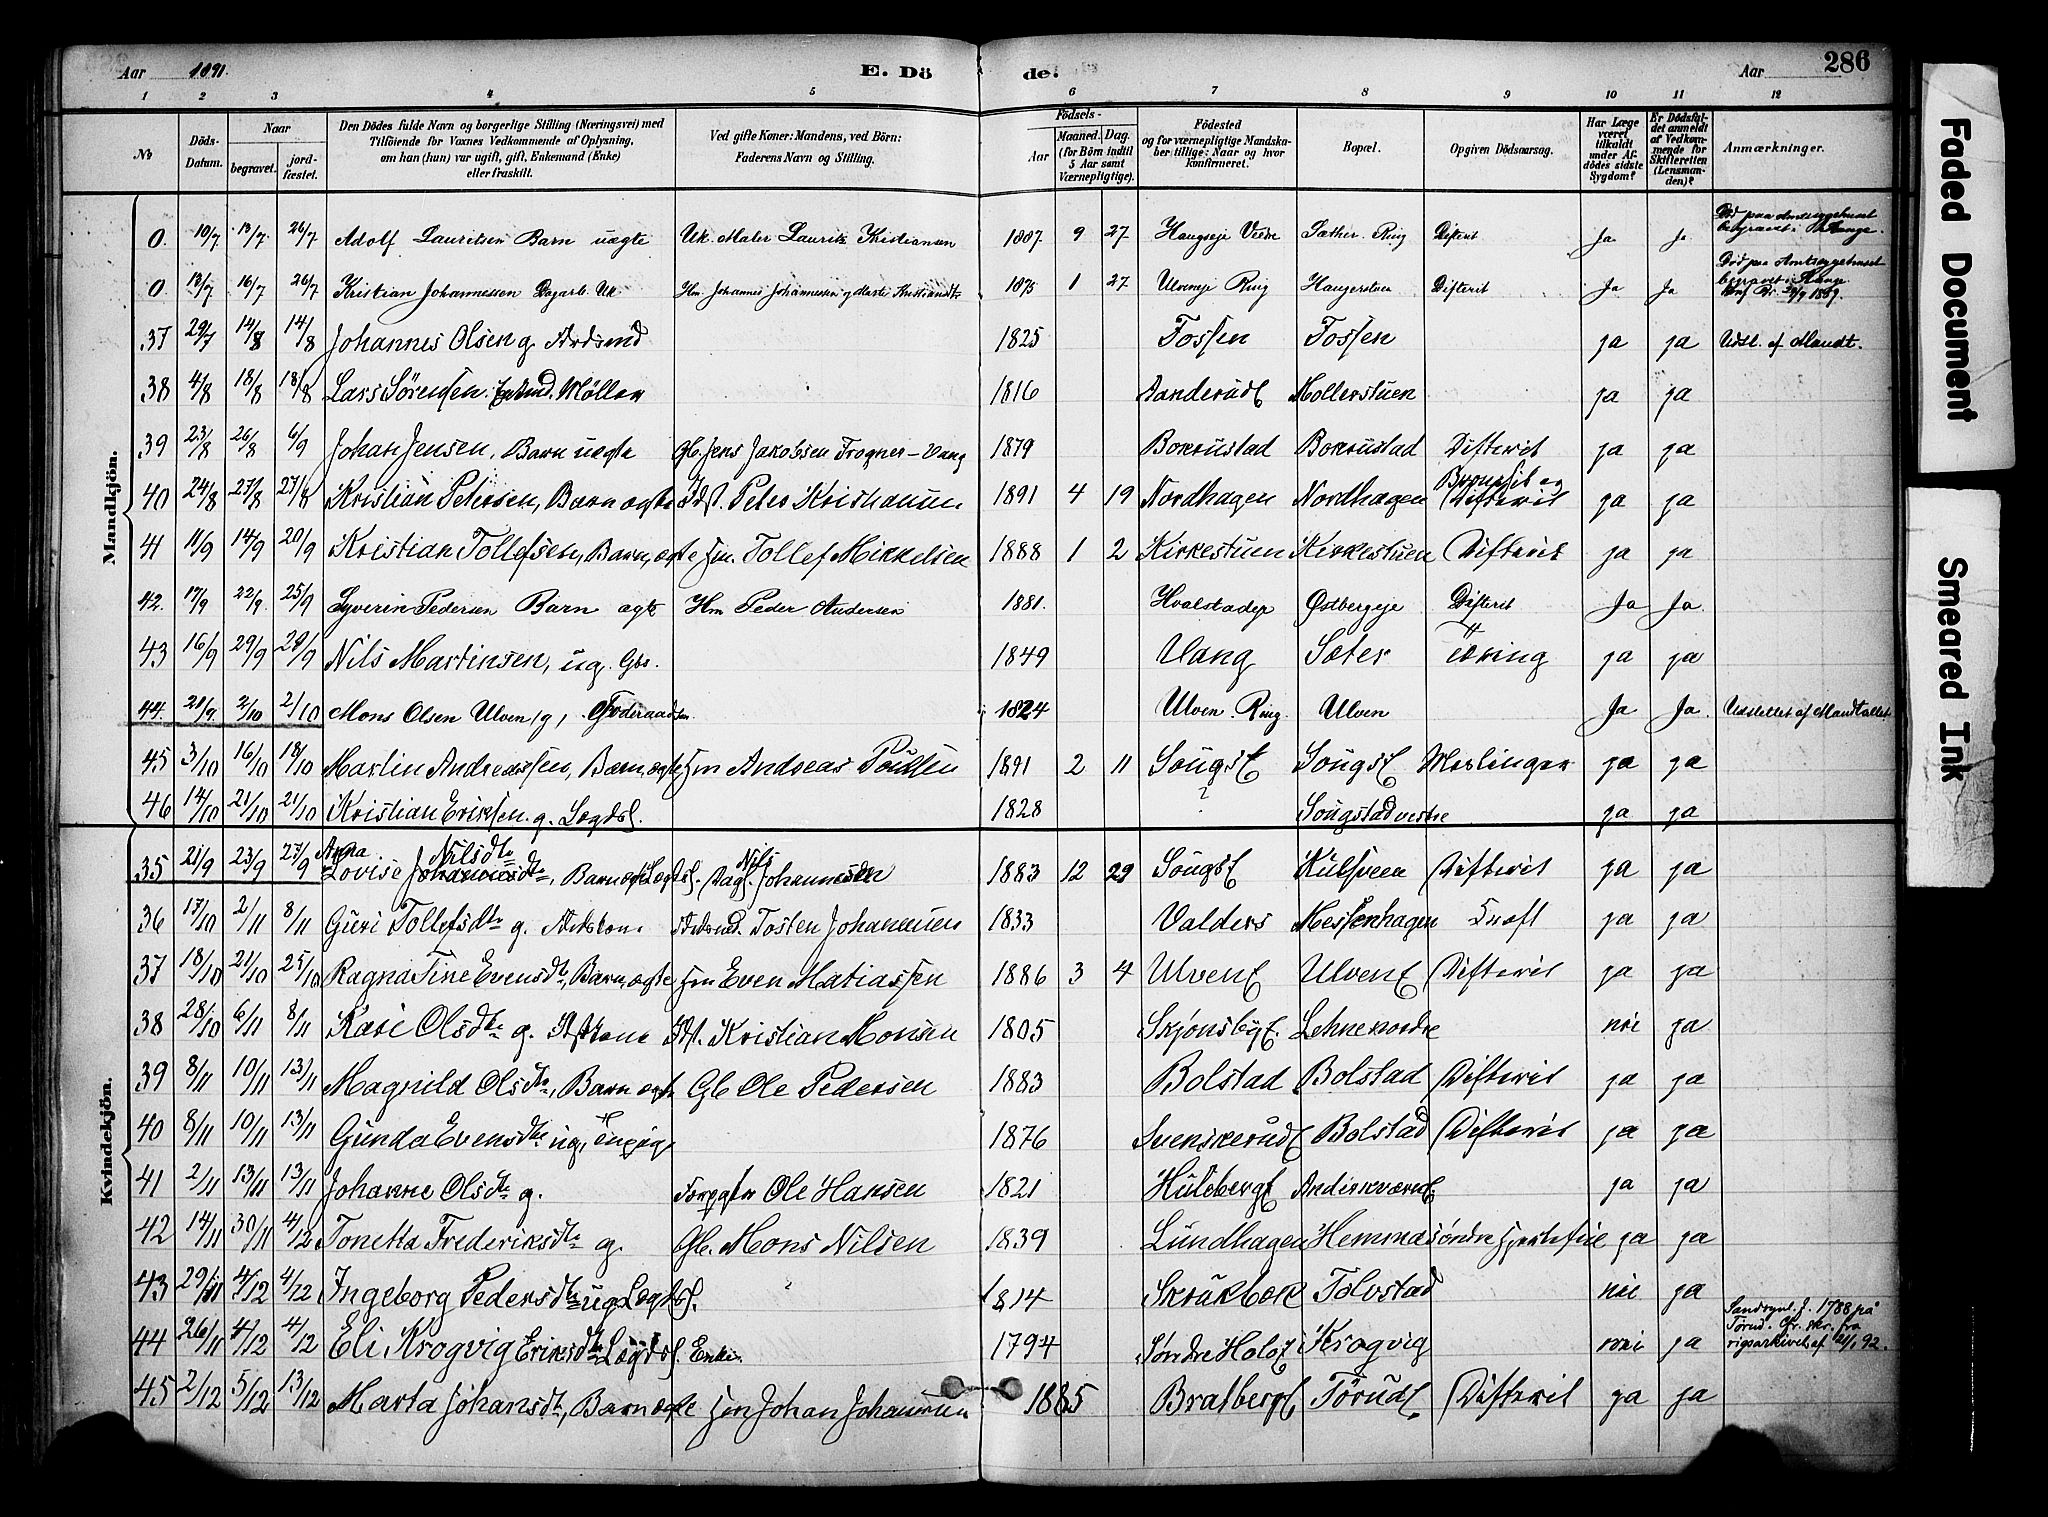 Aar 1891.
E. Döde.
Aar
286
1 2 3 4 5 6 7 8 9 10 11 12
No
Döds-Datum.
Naar
begravet.
jordfæstet.
Den Dödes fulde Navn og borgerlige Stilling (Næringsvei) med
Tilföiende for Voxnes Vedkommende af Oplysning,
om han (hun) var ugift, gift, Enkemand (Enke)
eller fraskilt.
Ved gifte Koner: Mandens, ved Börn:
Faderens Navn og Stilling.
Födsels-
Aar
Maaned. Dag.
(for Börn indtil
5 Aar samt
Værnepligtige).
Födested
og for værnepligtige Mandskaber tillige: Naar og hvor
konfirmeret.
Bopæl.
Opgiven Dödsaarsag.
Har Læge
været
tilkaldt
under Afdödes sidste
Sygdom?
Er Dödsfaldet anmeldt
af Vedkommende for
Skifteretten
(Lensmanden)?
Anmærkninger.
Mandkjön.
0. 10/7 13/7 26/7 Adolf Lauritsen Barn uægte Uk. Maler Lauritz Kristiansen 1887. 9 27 Sæther. Ring Difterit Ja Ja Död paa Amtssygehuset begravet i Stange.
0 13/7 16/7 26/7 Kristian Johannessen Dagarb. Uk Hm Johannes Johannessen og Marte 1875 1 27 Ulveneje Ring Haugerstuen Difterit Ja Ja Död paa Amtssygehuset begravet i Stange
37 29/7 14/8 14/8 Johannes Olsen g. Arbsmd 1825 Fossen Fossen ja ja Udsl. af Mandt.
38 4/8 18/8 18/8 Lars Sörensen. Enkmd. Möller 1816 Aanderud Mollerstuen ja ja
39 23/8 26/8 6/9 Johan Jensen, Barn uegte Gb. Jens Jakobsen Frogner-Vang 1879 Bokrustad Bokrustad Difterit ja ja
40 24/8 27/8 27/8 Kristian Petersen, Barn ægte Peter Kristiansen 1891 4 19 Nordhagen Nordhagen Difterit ja ja
41 11/9 14/9 20/9 Kristian Tollefsen, Barn, ægte Tollef Mikkelsen 1888 1 2 Kirkestuen Kirkestuen Difterit ja ja
42. 17/9 22/9. 25/9 Syverin Pedersen Barn ægte Hm Peder Andersen 1881. Hvalstadeje Østbergeje Difterit Ja Ja.
43 16/9 29/9 29/9 Nils Martinsen, ug. Gbr. 1849 Vang Sæter Tæring ja ja
44. 20/9 2/10 2/10 Mons Olsen Ulven, g, 1824 Ulven. Ring. Ulven Ja Ja. Udslettet af Mandtallet
45 3/10 16/10 18/10 Martin Andreassen, Barn, ægte Andreas Poulsen 1891 2 11 Sougst Sougst Meslinger ja ja
46 14/10 21/10 21/10 Kristian Eriksen. g. Lægdsl. 1828 ? Sougstad vestre ja ja
Kvindekjön.
35 21/9 23/9 27/9 Anna Lovise Nilsdtr Johannesdtr, Barn ægte Lægdsl. Dagl. Nils Johannessen 1883 12 29 Sougst Kulsveen Difterit ja ja
36 17/10 2/11 8/11 Guri Tollefsdtr g. Arbskone Arbsmd. Tosten Johannesen 1833 Valders Messenhagen ja ja
37 18/10 21/10 25/10 Ragna Tine Evensdtr, Barn, ægte Even Matiassen 1886 3 4 Ulven Ulven Difterit ja ja
38 28/10 6/11 8/11 Kari Olsdtr g. Kristian Monsen 1805 Skjönsby Lehne nordre nei ja
39 8/11 10/11 13/11 Magnild Olsdtr, Barn ægte Gb Ole Pedersen 1883 Bolstad Bolstad Difterit ja ja
40 8/11 10/11 13/11 Gunda Evensdtr ug, 1876 Svenskerud Bolstad Difterit ja ja
41 2/11 13/11 13/11 Johanne Olsdtr g. Ole Hansen 1821 Huleberg ja ja
42 14/11 30/11 4/12 Tonetta Frederiksdtr g. Gb. Mons Nilsen 1839 Lundhagen Hemma söndre ja ja
43 29/11 4/12 4/12 Ingeborg Pedersdtr ug Lægdsl. 1814 Skrukbæk Tolvstad nei ja
44 26/11 4/12 4/12 Eli Krogvig Eriksdtr Lægdsl. Enke. 1794 Söndre Hol Krogvig nei ja Sandsynl. f. 1788 på Tørud. Gr. skr. fra rigsarkivet af 12/1 92.
45 2/12 5/12 13/12 Marta Johansdtr, Barn ægte Johan Johannesen 1885 Bratberg Törud Difterit ja ja
Faded Document
Smeared Ink